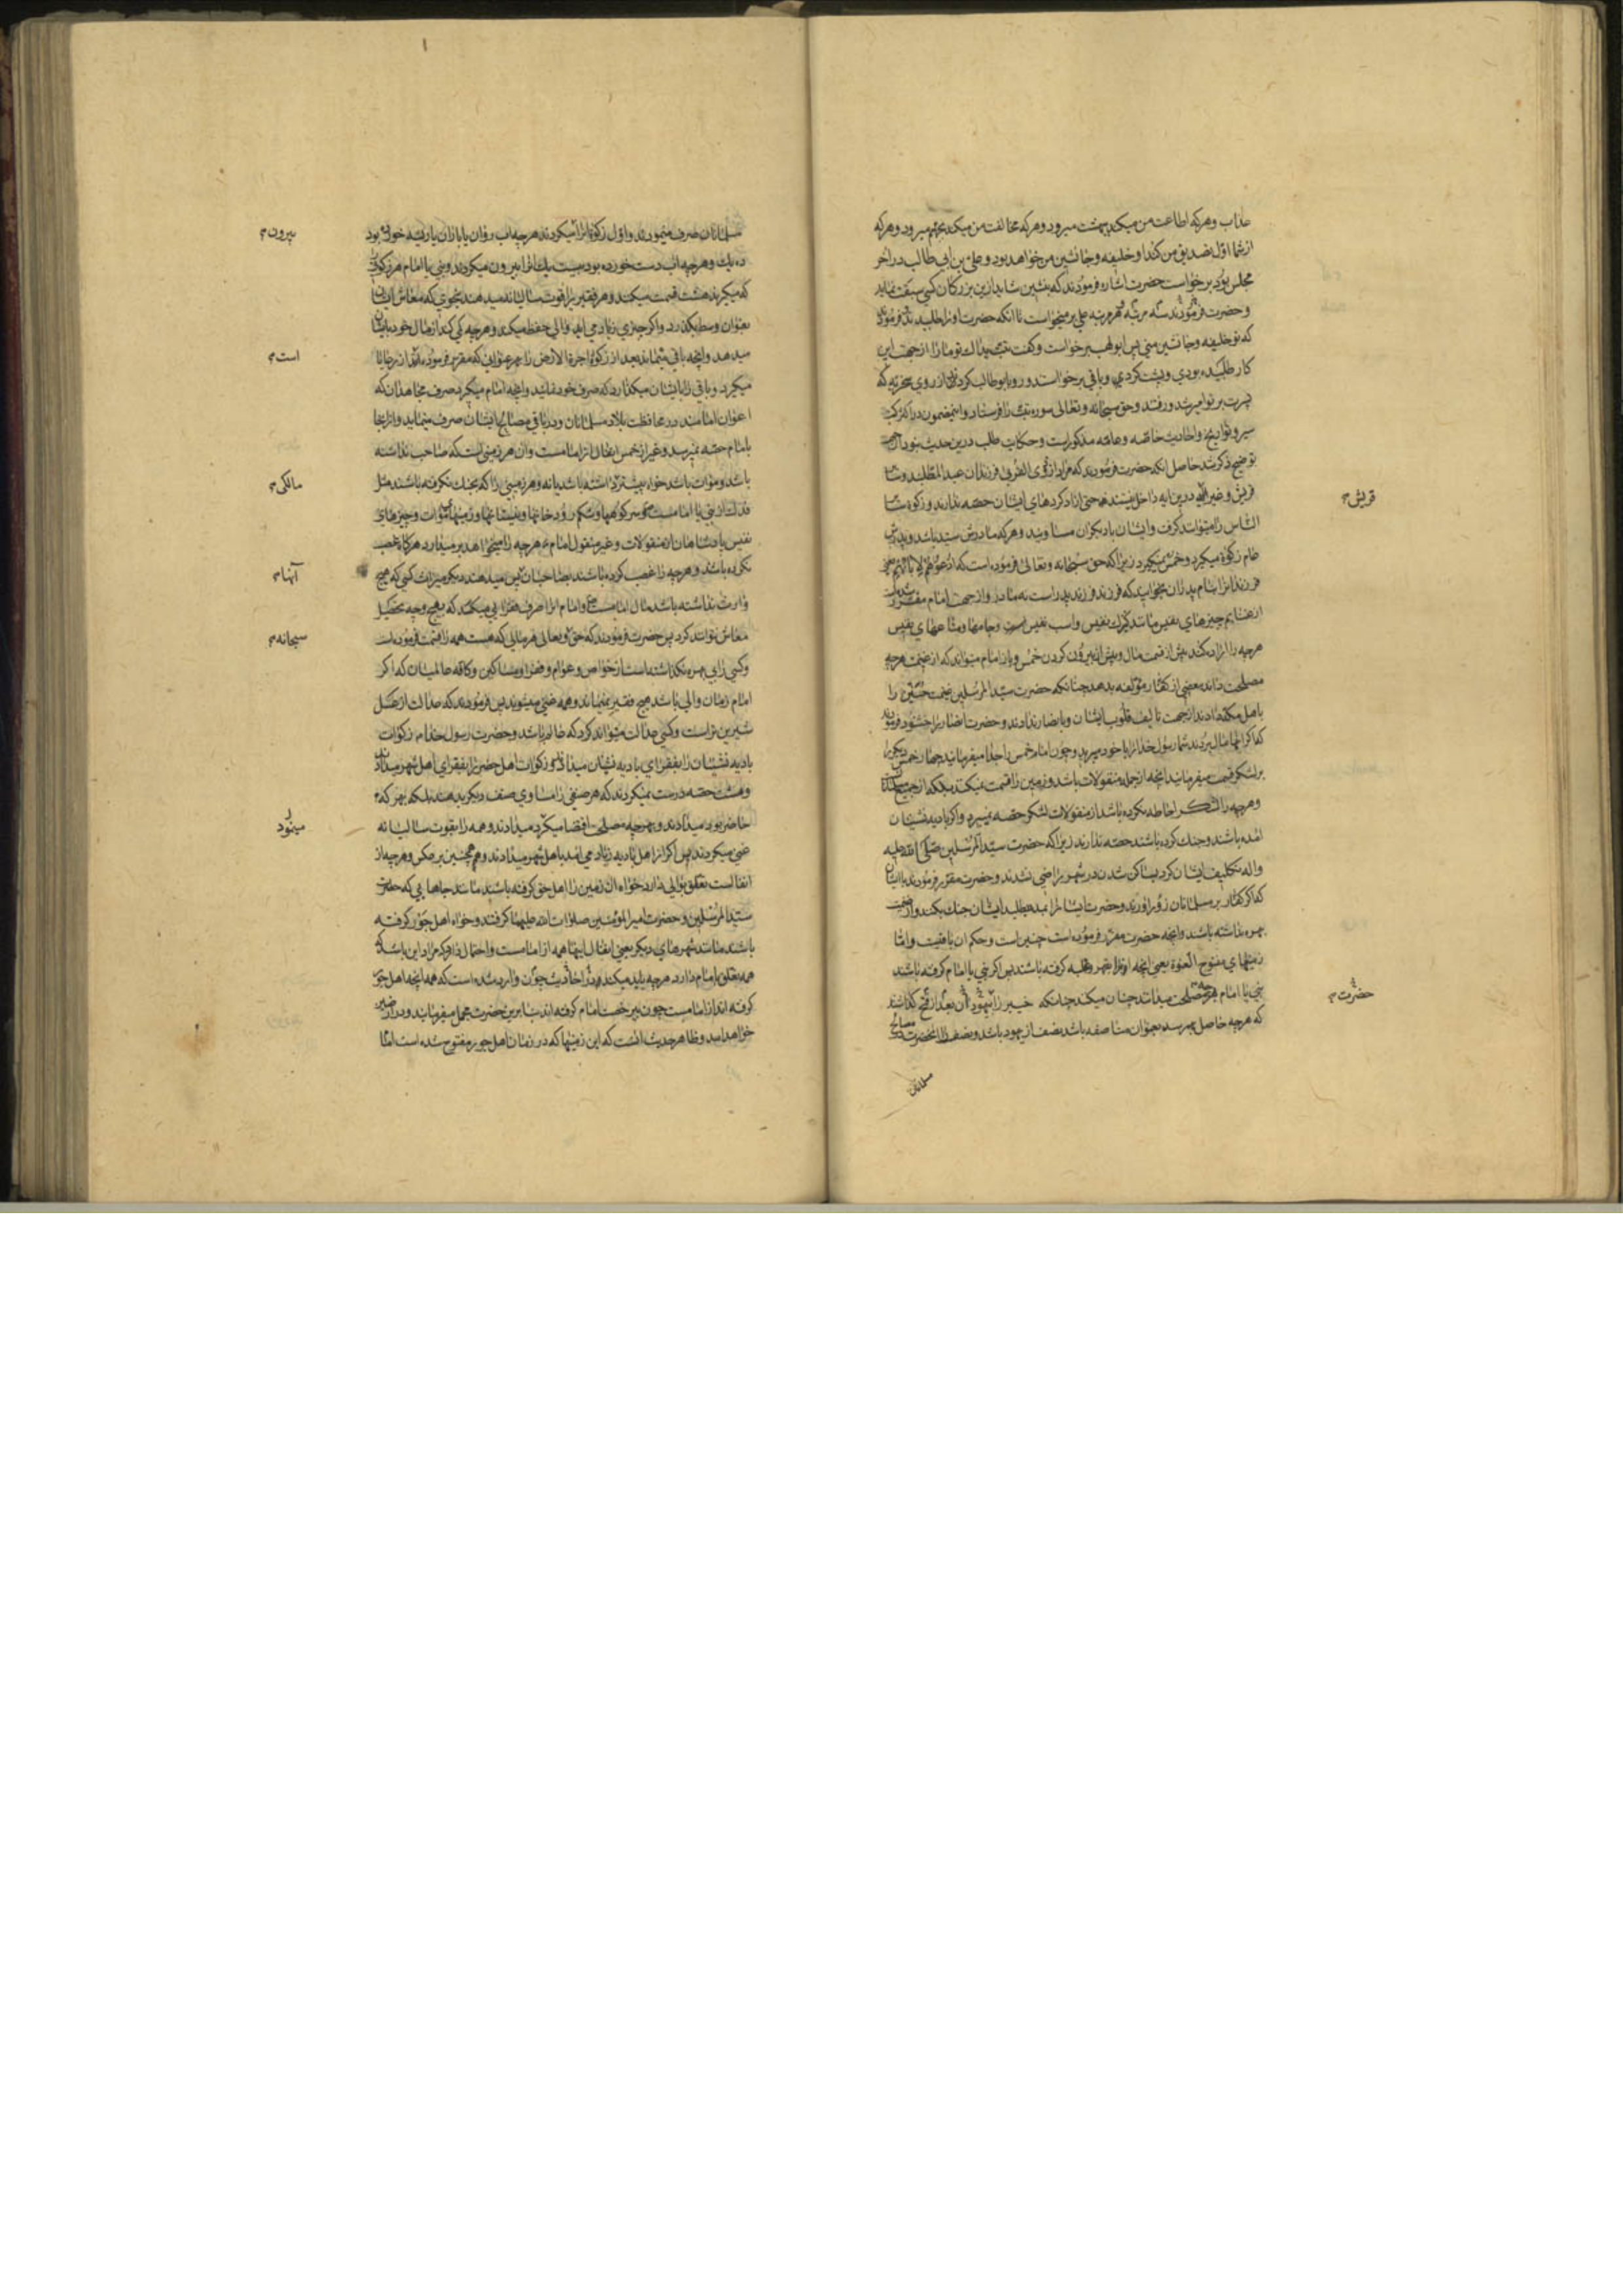 عذاب و هر که اطاعت من میکند ببهشت میرود و هر که مخالفت من میکند بجهنم میرود و هر که
از شما اول تصدیق من کند او خلیفه و جانشین من خواهد بود و علی بن ابی طالب در آخر
مجلس بود برخواست حضرت اشاره فرمودند که بنشین شاید ازین بزرگان کسی سبقت نماید
و حضرت فرمودند سه مرتبه هر مرتبه علی بر میخواست تا آنکه حضرت او را طلبیدند و فرمودند
که تو خلیفه و جانشین منی پس ابو لهب برخواست و گفت تبت یداک تو ما را از جهت این
کار طلبیده بودی و پشت کردی و باقی برخواستند و رو بابو طالب کردند از روی سخریه که
پسرت بر تو امیر شد و رفتند و حق سبحانه و تعالی سوره تبت را فرستاد و این مضمون در اکثر کتب
سیر و تواریخ و احادیث خاصه و عامه مذکور است و حکایت طلب درین حدیث نبود از جهت
توضیح ذکر شد حاصل آنکه حضرت فرمودند که مراد از ذوی القربی فرزندان عبد المطلبند و سایر
قریش و غیر ایشان درین آیه داخل نیستند حتی آزاد کردهای ایشان حصه ندارند و زکوة سایر
الناس را میتوانند گرفت و ایشان با دیگران مساویند و هر که مادرش سید باشد و پدرش
عام زکوة میگیرد و خمس نمیگیرد زیرا که حق سبحانه و تعالی فرموده است که ادعوهم لآبائهم یعنی
فرزندان را بنام پدران بخوانید که فرزند فرزند پدر است نه مادر و از جهت امام مقرر
از غنایم چیزهای نفیس مانند کنیزک نفیس و اسب نفیس و جامها و متاعهای نفیس
هرچه را اراده کند پیش از قسمت مال و پیش از بیرون کردن خمس و باز امام میتواند که از غنیمت هرچه
مصلحت داند بعضی از کفار مؤلفه بدهد چنانکه حضرت سید المرسلین غنیمت حنین را
باهل مکه دادند از جهت تألیف قلوب ایشان و بانصار ندادند و حضرت انصار را خشنود فرمودند
که اگر آنها مال بردند شما رسول خدا را با خود میبرید و چون امام خمس را جدا میفرمایند چهار خمس دیگر را
بر لشکر قسمت میفرمایند آنچه از جمله منقولات باشد و زمین را قسمت نمیکند بلکه از جمیع
و هرچه را لشکر احاطه نکرده باشد از منقولات لشکر حصه نمیبرد و اگر بادیه نشینان
آمده باشند و جنک کرده باشند حصه ندارند زیرا که حضرت سید المرسلین صلی الله علیه
و آله تکلیف ایشان کردند بساکن شدن در شهر راضی نشدند و حضرت مقرر فرمودند با ایشان
که اگر کفار بر مسلمانان زور آورند و حضرت ایشانرا بمدد طلبد ایشان جنک بکنند و از غنیمت
بهره نداشته باشند و آنچه حضرت مقرر فرموده است چنین است و حکم آن باقیست و اما
زمینهای مفتوح العنوة یعنی آنچه او را بقهر و غلبه گرفته باشند پس اگر نبی یا امام گرفته باشند
نبی یا امام بهرچه مصلحت میداند چنان میکند چنانکه خیبر را بیهود آن بعد از فتح گذاشتند
که هرچه حاصل بهم رسد بعنوان مناصفه باشد نصف از یهود باشد و نصف را آنحضرت بمصالح
مسلمانان
قریش
حضرت
مسلمانان صرف مینمودند و اول زکوة آنرا میکردند هرچه آب روان یا باران یا ریشه خورده بود
ده یک و هرچه آب دست خورده بود بیست یک آنرا بیرون میکردند و نبی یا امام هر زکوتی
که میگیرند هشت قسمت میکند و هر فقیر را قوت سالیانه میدهند بنحوی که معاش ایشان
بعنوان وسط بگذرد و اگر چیزی زیاد می آید والی حفظ میکند و هرچه کمی کند از مال خود بایشان
میدهد و آنچه باقی میماند بعد از زکوة اجرة الارض را بهر عنوانی که مقرر فرموده اند از رعایا
میگیرد و باقی را بایشان میگذارد که صرف خود نمایند و آنچه امام میگیرد صرف مجاهدان که
اعوان امامند در محافظت بلاد مسلمانان و در باقی مصالح ایشان صرف مینماید و از اینجا
بامام حصه نمیرسد و غیر از خمس انفال از امامست و آن هر زمینی است که صاحب نداشته
باشد و موات باشد خواه پیشتر داشته باشد یا نه و هر زمینی را که بجنک نگرفته باشند مثل
فدک از نبی یا امامست و سر کوهها و شکم رودخانها و نیستانها و زمینهای موات و چیزهای
نفیس پادشاهان از منقولات و غیر منقول امام هرچه را میخواهد بر میدارد هرگاه غصب
نکرده باشد و هرچه را غصب کرده باشند بصاحبان پس میدهند دیگر میراث کسی که هیچ
وارث نداشته باشد مال امامست و امام آنرا صرف فقرایی میکند که بهیچ وجه تحصیل
معاش نتوانند کرد پس حضرت فرمودند که حق تعالی هر مالی که هست همه را قسمت فرموده است
و کسی را بی بهره نگذاشته است از خواص و عوام و فقرا و مساکین و کافه عالمیان که اگر
امام زمان والی باشد هیچ فقیر نمیماند و همه غنی میشوند پس فرمودند که عدالت از عسل
شیرین تر است و کسی عدالت میتواند کرد که عالم باشد و حضرت رسول خدا زکوات
بادیه نشینان را بفقرای بادیه نشینان میداد و زکوات اهل حضر را بفقرای اهل شهر میدادند
و هشت حصه درست نمیکردند که هر صنفی را مساوی صنف دیگر بدهند بلکه بهر که
حاضر بود میدادند و بهرچه مصلحت اقتضا میکرد میدادند و همه را بقوت سالیانه
غنی میکردند پس اگر از اهل بادیه زیاد می آمد باهل شهر میدادند و همچنین بر عکس و هرچه از
انفالست تعلق بوالی دارد خواه آن زمین را اهل حق گرفته باشند مانند جاهایی که حضرت
سید المرسلین و حضرت امیر المؤمنین صلوات الله علیهما گرفتند و خواه اهل جور گرفته
باشند مانند شهرهای دیگر یعنی انفال اینها همه از امامست و احتمال دارد که مراد این باشد که
همه تعلق بامام دارد هرچه باید میکند و در احادیث چون وارد شده است که همه آنچه اهل جور
گرفته اند از امامست چون بیرخصت امام گرفته اند بنابرین حضرت مجمل میفرمایند و در آخر همین
خواهد آمد و ظاهر حدیث آنست که این زمینها که در زمان اهل جور مفتوح شده است امام
بیرون
است
مالکی
آنها
سبحانه
مینود